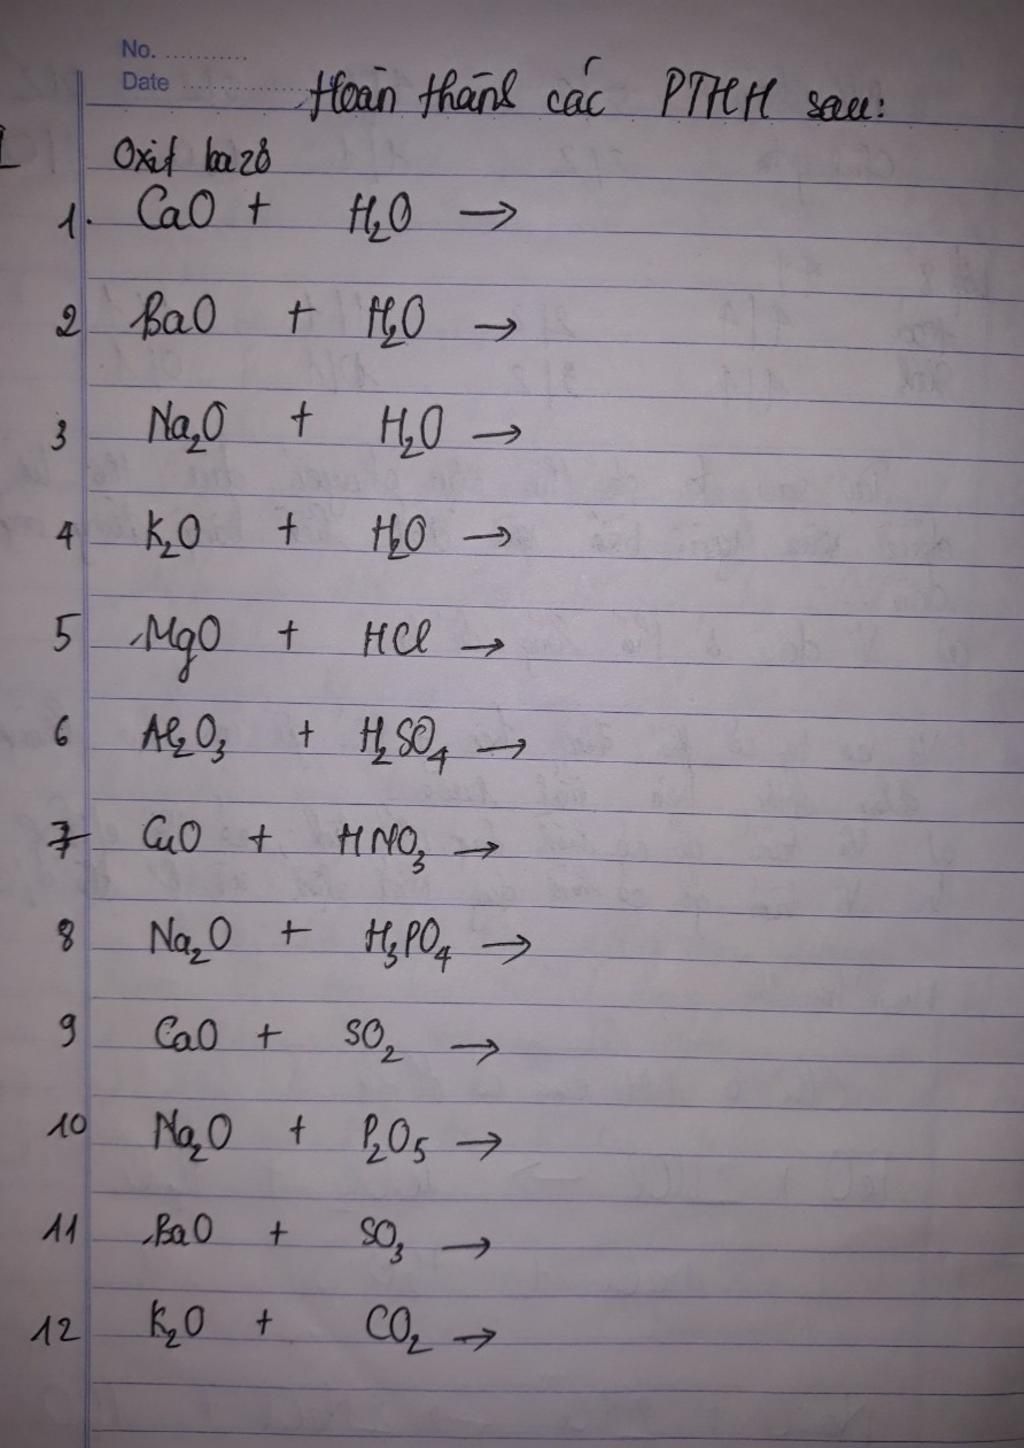 No. ...........
Date ................
Hoàn thành các PTHH sau:
Oxit bazơ
1. CaO + H₂O →
2 BaO + H₂O →
3 Na₂O + H₂O →
4 K₂O + H₂O →
5 MgO + HCl →
6 Al₂O₃ + H₂SO₄ →
7 CuO + HNO₃ →
8 Na₂O + H₃PO₄ →
9 CaO + SO₂ →
10 Na₂O + P₂O₅ →
11 BaO + SO₃ →
12 K₂O + CO₂ →